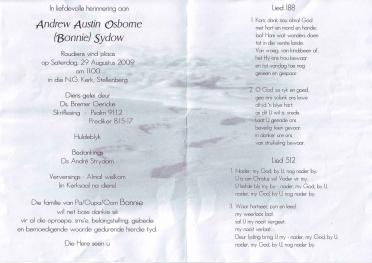 In liefdevolle herinnering aan
Andrew Austin Osborne
(Bonnie) Sydow
Roudiens vind plaas
op Saterdag, 29 Augustus 2009
om 11:00
in die N.G. Kerk, Stellenberg
Diens gelei deur
Ds. Bremer Gericke
Skriflesing - Psalm 91:1,2
Prediker 8:15-17
Huldeblyk
Bedankings
Ds André Strydom
Verversings - Almal welkom
(in Kerksaal na diens)
Die familie van Pa/Oupa/Oom Bonnie
wil net baie dankie sê
vir al die oproepe, sms'e, belangstelling, gebede
en bemoedigende woorde gedurende hierdie tyd.
Die Here seën u
Lied 188
1. Kom, dank nou almal God
met hart en mond en hande;
loof Hom wat wonders doen
tot in die verste lande.
Van vroeg, van kindsbeen af
het Hy ons hou bewaar
en tot vandag toe nog
geseën en gespaar.
2. O God so ryk en goed,
gee ons solank ons lewe
altyd 'n blye hart
al dit U wil is vrede.
Laat U genade ons
beveilig teen gevaar
in donker uur ons
van struikeling bewaar.
Lied 512
1. Nader, my God, by U, nog nader by.
U is om Christus wil Vader vir my.
U liefde bly my by - nader, my God, by U,
nader, my God, by U, nog nader by.
3. Waar hartseer, pyn en leed
my weerloos laat
sal U my nooit vergeet
my nooit verlaat.
Deur lyding bring U my - nader, my God, by U,
nader, my God, by U, nog nader by.